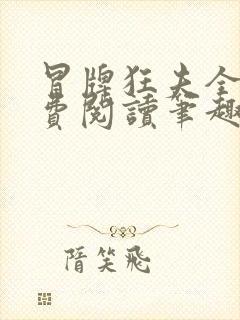 冒牌狂夫全
費閱讀筆趣
隋笑飛